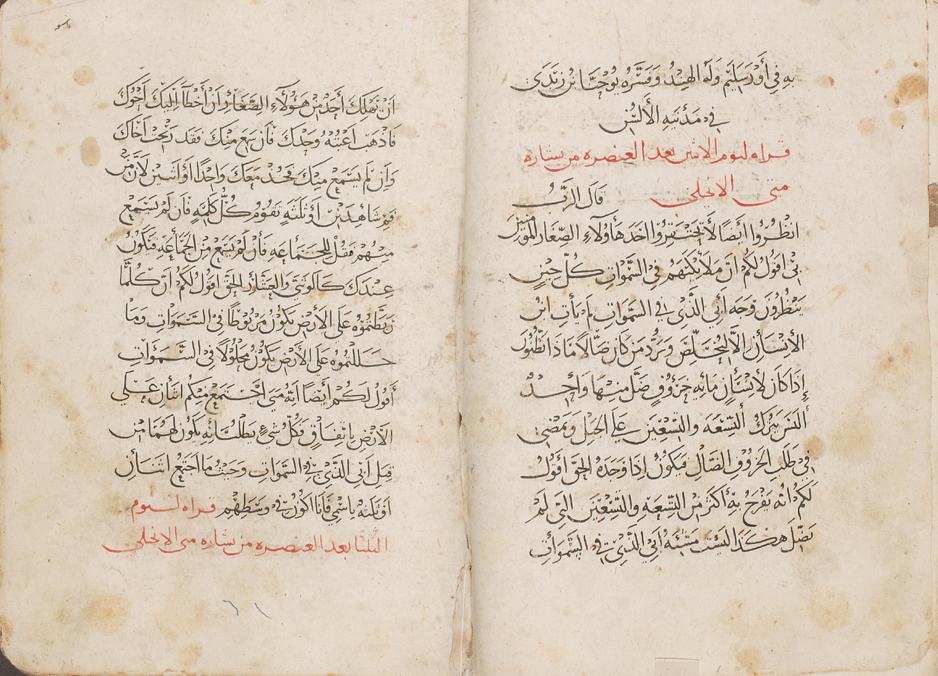 به في أورشليم وله الهند وفسره يوحنا بن زبدي
في مدنيه الألسُن
قراه ليوم الاثنين بعد العنصره من بشاره
متى الانجلي قال الرَّبُّ
انظُروا أيضًا لا تحتقروا احد هاؤلاء الصِّغار المؤمنين
بي اقول لكم انّ ملائكتهم في السَّموات كلّ حينٍ
ينظُرون وجه أبي الَّذي في السموات لم يأت ابن
الأنسان الَّا ليُخلِّص ويردّ من كان ضالًا ماذا تظُنُّون
إذا كان لأنسانٍ مائه خروفٍ فضلَّ منها واحدٌ
أليس يترك التِّسعه والتِّسعين على الجبل ويمضي
في طلب الخروف الضَّال فيكون إذا وجده الحق اقول
لكم انّه يفرح به اكثر من التِّسعه والتِّسعين التي لم
تضلّ هكذا ليست مشيئه أبي الَّذي في السَّموات
ان يهلك أحدٌ من هؤلاء الصِّغار وان أخطأ إليك أخوك
فاذهب اعتبه وحدك فان سمع منك فقد ربحت أخاك
وان لم يسمع منك فخذ معك واحدًا أو اثنين لأن من
فم شاهدين أو ثلثه تقوم كُلُّ كلمهٍ فان لم يسمع
منهم فقل للجماعه فان لم يسمع من الجماعه فيكون
عندك كالوثني والعشّار الحق اقول لكم انّ كلّما
ربطتموه على الأرض يكون مربوطًا في السَّموات وما
حللتموه على الأرض يكون محلولًا في السَّموات
أقول لكم أيضًا انّه متى اجتمع منكم اثنان على
الأرض باتّفاقٍ فكلّ شيءٍ يطلبانه يكون لهما من
قبل أبي الَّذي في السَّموات وحيث ما اجتمع اثنان
أو ثلثه باسمي فأنا اكون في وسطهم قراه ليوم
الثلثا بعد العنصره من بشاره متى الانجلي
٦١